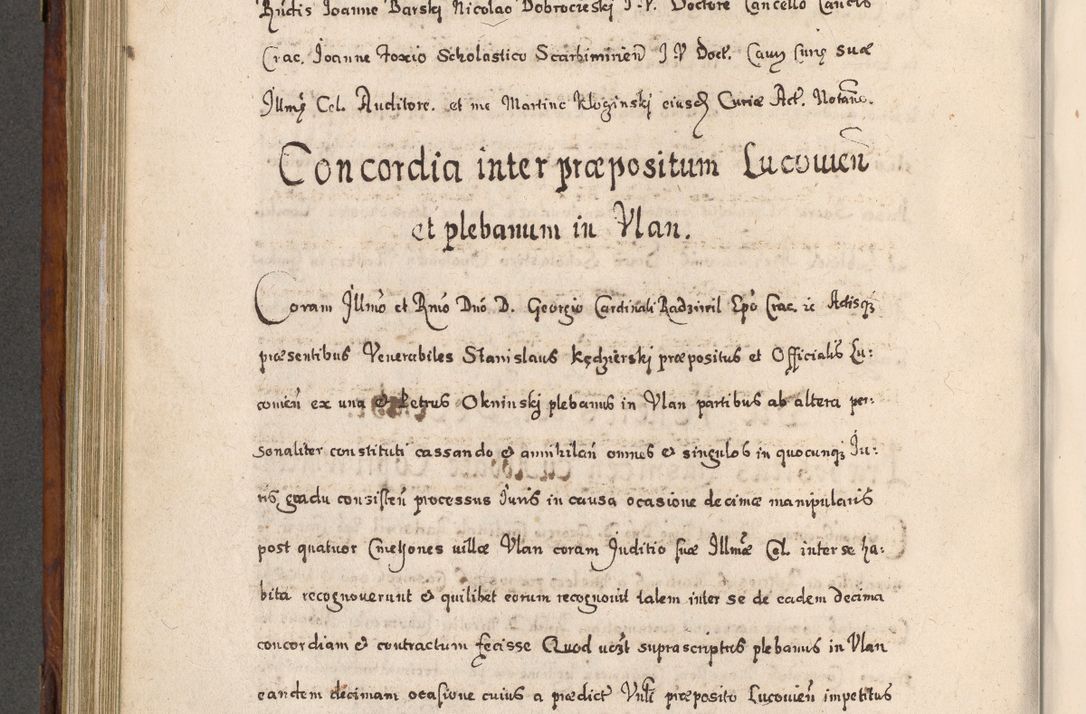 Rndis Joanne Barskj Nicolao Dobrocieskj J. V. Doctore Cancello Cancrs
Crac. Joanne Foxio Scholastico Scarbimirien J. V Doct. Caurz Curię suæ
Jllmę Cel. Auditore. et me Martino Kłoginskj eiusd Curiæ Act. Notario.
Concordia inter præpositum Lucouien
et plebanum in Vlan.
Coram Jllmo et Rmo Dno D. Georgio Cardinali Radziwil Epo Crac. ic Actisq
præsentibus Venerabiles Stanislaus Kędzierskj præpositus et Officialis Lu:
couien ex una & Petrus Okninskj plebanus in Vlan partibus ab altera per:
sonaliter constituti cassando & annihilan omnes & singulos in quocunq Ju:
ris gradu consisten processus Juris in causa ocasione decimæ manipularis
post quatuor Cmetjones uillæ Vlan coram Juditio suæ Jllmæ Cel. inter se ha:
bita recognouerunt & quilibet eorum recognouit talem inter se de eadem decima
concordiam & contractum fecisse Quod uczt suprascriptus plebanus in Vlan
eandem decimam ocasione cuius a prædict Vnli præposito Lucouien impetitus